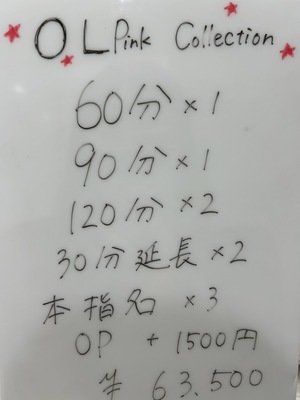 OL Pink Collection
60分×1
90分×1
120分×2
30分延長×2
本指名 ×3
OP + 1500円
¥ 63.500